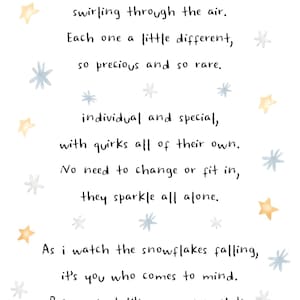 swirling through the air.
Each one a little different,
so precious and so rare.
individual and special,
with quirks all of their own.
No need to change or fit in,
they sparkle all alone.
As i watch the snowflakes falling,
it's you who comes to mind.